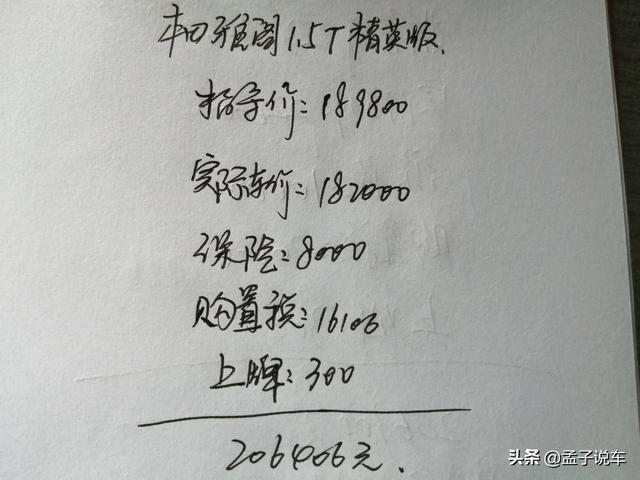 本田雅阁1.5T精英版.
指导价:189800
实际车价:182000
保险:8000
购置税:16106
上牌:300
206406元.
头条 @孟子说车